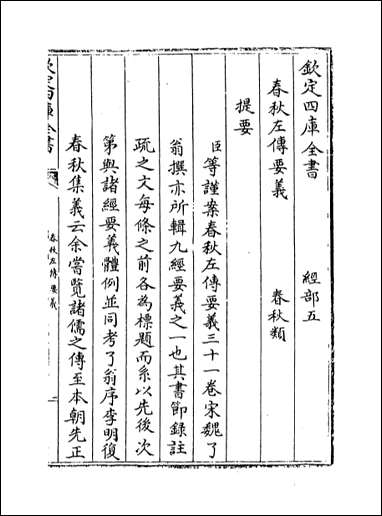 欽定四庫全書
經部五
春秋左傳要義
春秋類
提要
臣等謹案春秋左傳要義三十一卷宋魏了
翁撰亦所輯九經要義之一也其書節錄註
疏之文每條之前各為標題而系以先後次
第與諸經要義體例並同考了翁序李明復
春秋集義云余嘗覽諸儒之傳至本朝先正
欽定四庫全書
春秋左傳要義
一